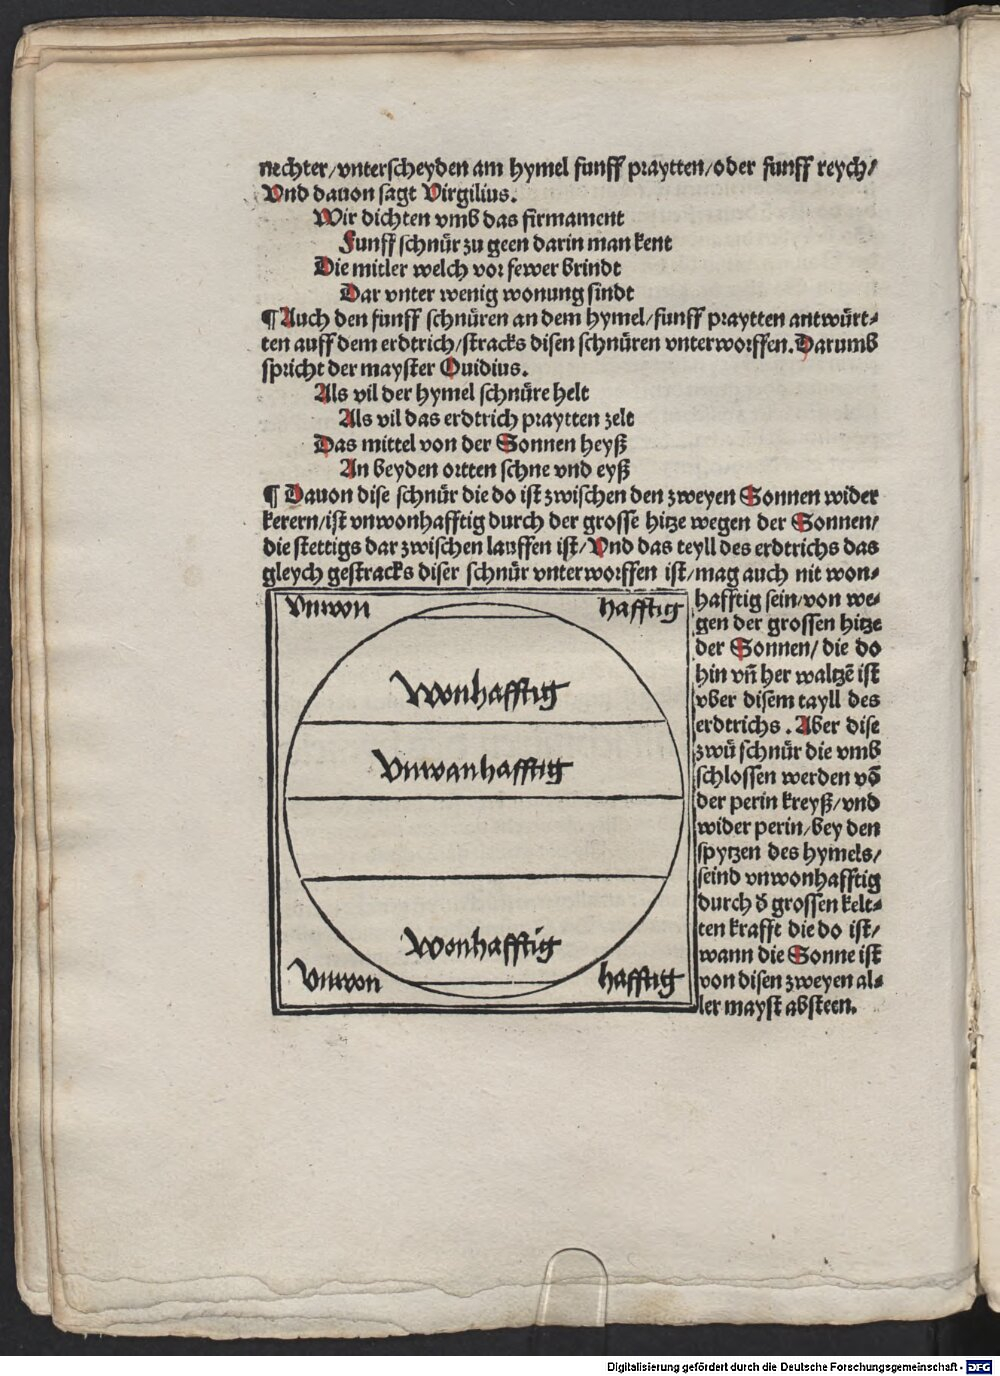 nechter/vnterscheyden am hymel funff praytten/oder funff reych/
Vnd dauon sagt Virgilius.
Wir dichten vmb das firmament
Funff schnür zu geen darin man kent
Die mitler welch vor fewer brindt
Dar vnter wenig wonung sindt
¶ Auch den funff schnüren an dem hymel/funff praytten antwürt⸗
ten auff dem erdtrich/stracks disen schnüren vnterworffen. Darumb
spricht der mayster Ouidius.
Als vil der hymel schnüre helt
Als vil das erdtrich praytten zelt
Das mittel von der Sonnen heyß
An beyden ortten schne vnd eyß
¶ Dauon dise schnür die do ist zwischen den zweyen Sonnen wider
kerern/ist vnwonhafftig durch der grosse hitze wegen der Sonnen/
die stettigs dar zwischen lauffen ist/Vnd das teyll des erdtrichs das
gleych gestracks diser schnür vnterworffen ist/mag auch nit won⸗
hafftig sein/von we⸗
gen der grossen hitze
der Sonnen/ die do
hin vñ her waltzẽ ist
vber disem tayll des
erdtrichs. Aber dise
zwü schnür die vmb
schlossen werden võ
der perin kreyß/vnd
wider perin/bey den
spytzen des hymels/
seind vnwonhafftig
durch d̕ grossen kelt⸗
ten krafft die do ist/
wann die Sonne ist
von disen zweyen al⸗
ler mayst absteen.
Vnwon hafftig
Wonhafftig
Vnwanhafftig
Wonhafftig
Vnwon hafftig
Digitalisierung gefördert durch die Deutsche Forschungsgemeinschaft - DFG